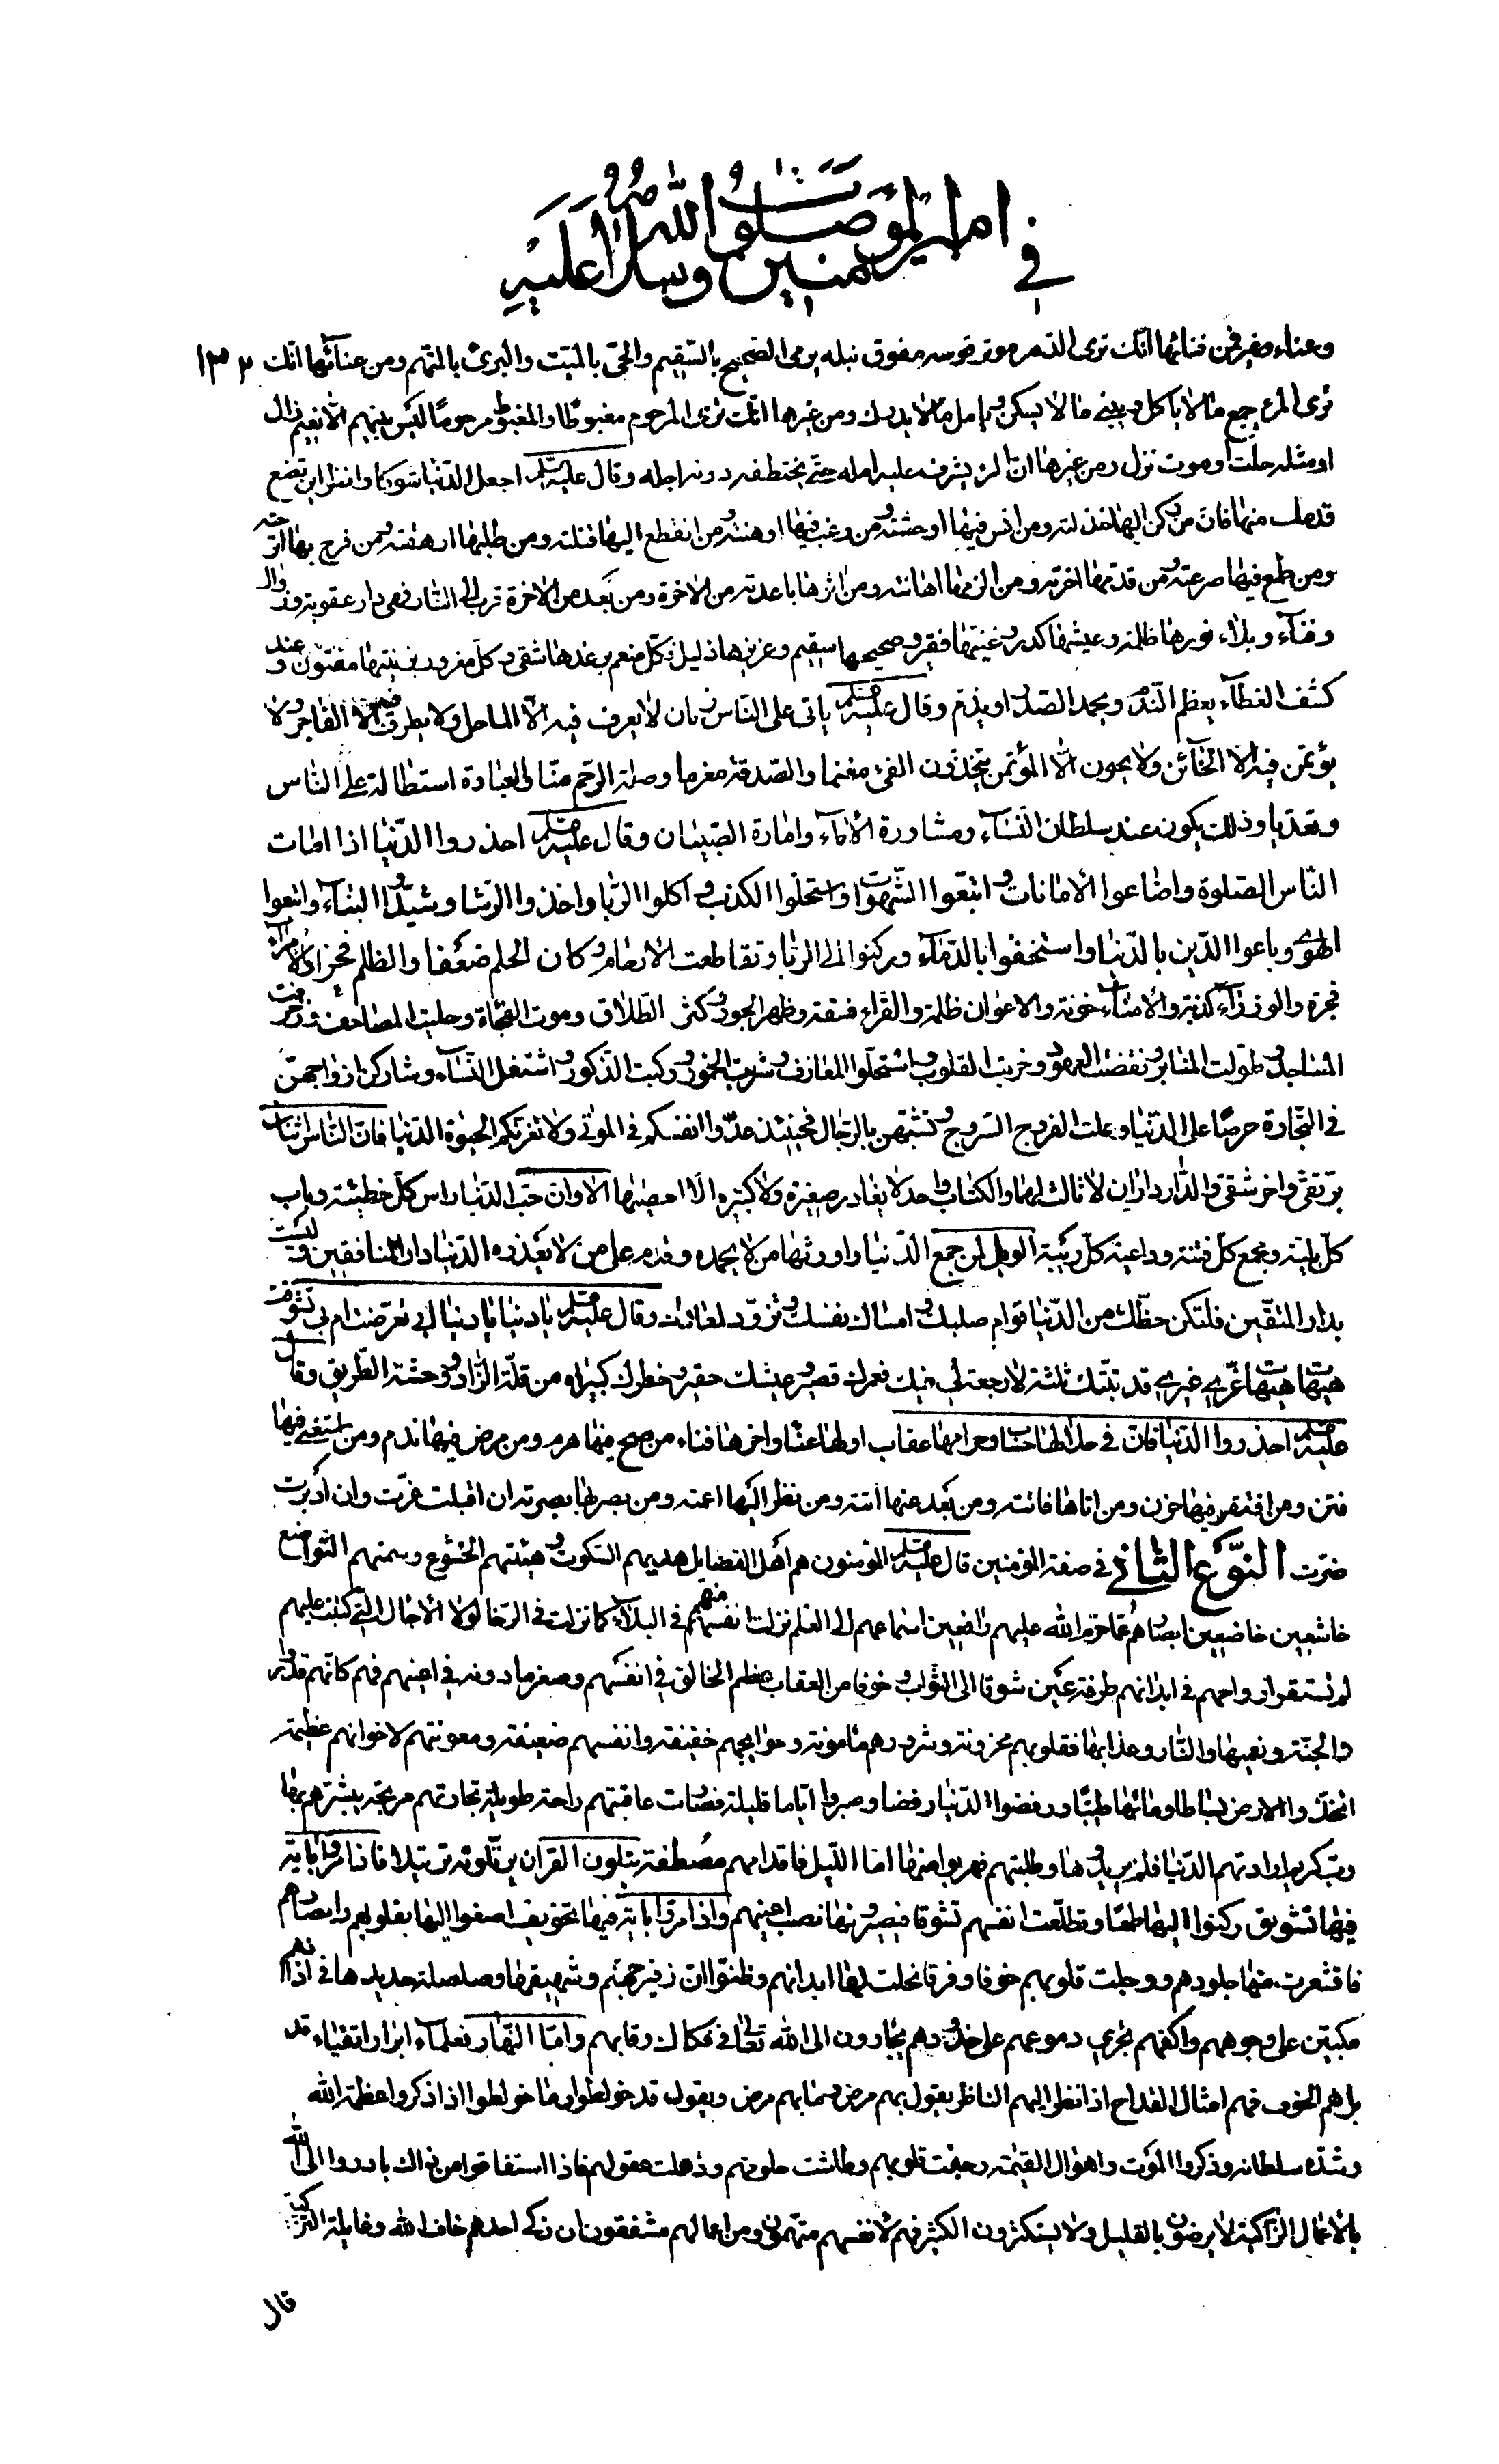 في امير المؤمنين صلوات الله وسلامه عليه
١٣٢
وعناء وغير فمن فنائها انّك ترى الدّهر موتر قوسه مفوق نبله يرمى الصّحيح بالسّقيم والحىّ بالميّت والبرئ بالمتّهم ومن عنائها انّك
ترى المرء يجمع ما لا ياكل ويبنى ما لا يسكن ويامل ما لا يدرك ومن غيرها انّك ترى المرحوم مغبوطا والمغبوط مرحوما ليس بينهم الّا نعيم زال
او مثلة حلّت او موت نزل ومن غيرها انّ المرء يشرف عليه امله حتّى يختطفه دونه اجله وقال عليه السلم اجعل الدّنيا شوكا وانظر اين تضع
قدمك منها فانّ من ركن اليها خذلته ومن انس فيها اوحشته ومن رغب فيها اوهنته ومن انقطع اليها قتلته ومن طلبها ارهقته ومن فرح بها اترحته
ومن طمع فيها صرعته ومن قدّمها اخّرته ومن الزمها اهانته ومن اثرها باعدته من الاخرة ومن بعد من الاخرة قرب الى النّار فهى دار عقوبة وزوال
وفناء وبلاء نورها ظلمة وعيشها كدر وغنيّها فقير وصحيحها سقيم وعزيزها ذليل فكلّ منعم برغدها شقى وكلّ مغرور بزينتها مفتون وعند
كشف الغطاء يعظم النّدم ويحمد الصدر او يذمّ وقال عليه السلم ياتى على النّاس زمان لا يعرف فيه الّا الماحل ولا يظرف فيه الّا الفاجر ولا
يؤتمن فيه الّا الخائن ولا يخون الّا المؤتمن يتّخذون الفىء مغنما والصّدقة مغرما وصلة الرّحم منّا والعبادة استطالة على النّاس
وتعدّيا وذلك يكون عند سلطان النّساء ومشاورة الاماء وامارة الصّبيان وقال عليه السلم احذروا الدّنيا اذا امات
النّاس الصّلوة واضاعوا الامانات واتّبعوا الشّهوات واستحلّوا الكذب واكلوا الرّبا واخذوا الرّشا وشيّدوا البناء واتّبعوا
الهوى وباعوا الدّين بالدّنيا واستخفّوا بالدّماء وركنوا الى الريا وتقاطعت الارحام وكان الحلم ضعفا والظلم فخرا والامراء
فجرة والوزراء كذبة والامناء خونة والاعوان ظلمة والقرّاء فسقة وظهر الجور وكثر الطّلاق وموت الفجأة وحليت المصاحف وزخرفت
المساجد وطوّلت المنابر ونقضت العهود وخربت القلوب واستحلّوا المعازف وشربت الخمور وركبت الذّكور واشتغل النّساء وشاركن ازواجهنّ
في التّجارة حرصا على الدّنيا وعلت الفروج السّروج وتشبّهن بالرّجال فحينئذ عدّوا انفسكم في الموتى ولا تغرّنّكم الحيوة الدّنيا فانّ النّاس اثنان
برّ تقىّ واخر شقىّ والدّار داران لا ثالث لهما والكتاب واحد لا يغادر صغيرة ولا كبيرة الّا احصيها الا وانّ حبّ الدّنيا راس كلّ خطيئة وباب
كلّ بليّة ومجمع كلّ فتنة وداعية كلّ ريبة الويل لمن جمع الدّنيا واورثها من لا يحمده وقدم على من لا يعذره الدّنيا دار المنافقين وليست
بدار المتّقين فلتكن حظّك من الدّنيا قوام صلبك وامساك نفسك وتزوّد لمعادك وقال عليه السلم يا دنيا يا دنيا ابي تعرّضت ام بي تشوّقت
هيهات هيهات غرّي غيري قد بتتّك ثلثة لا رجعة لي فيك فعمرك قصير وعيشك حقير وخطرك كبير اه من قلّة الزّاد ووحشة الطّريق وقال
عليه السلم احذروا الدّنيا فانّ في حلالها حساب وحرامها عقاب اولها عنا واخرها فناء من صحّ فيها هرم ومن مرض فيها ندم ومن استغنى فيها
فتن ومن افتقر فيها حزن ومن اتاها فاتته ومن بعد عنها اتته ومن نظر اليها اعمته ومن بصر بها بصرته ان اقبلت غرّت وان ادبرت
ضرّت النّوع الثاني في صفة المؤمنين قال عليه السلم المؤمنون هم اهل الفضايل هديهم السّكوت وهيئتهم الخشوع وسمتهم التّواضع
خاشعين خاضعين ابصارهم عمّا حرّم الله عليهم رافعين اسماعهم الى العلم نزلت انفسهم منهم في البلاء كما نزلت في الرّخا لولا الاجال التي كتبت عليهم
لم تستقر ارواحهم في ابدانهم طرفة عين شوقا الى الثّواب وخوفا من العقاب عظم الخالق في انفسهم وصغر ما دونه في اعينهم فهم كانّهم قد راوا
والجنّة ونعيمها والنّار وعذابها فقلوبهم محزونة وشرورهم مامونة وحوايجهم خفيفة وانفسهم ضعيفة ومعونتهم لاخوانهم عظيمة
اتّخذوا الارض بساطا وماءها طيبا ورفضوا الدّنيا رفضا وصبروا ايّاما قليلة فصارت عاقبتهم راحة طويلة تجارتهم مربحة يبشّرهم بها
ربّ كريم ارادتهم الدّنيا فلم يريدوها وطلبتهم فهربوا منها امّا اللّيل فاقدامهم مصطفة يتلون القران يرتّلونه ترتيلا فاذا مرّوا باية
فيها تشويق ركنوا اليها طمعا وتطلّعت انفسهم تشوقا فيصيرونها نصب اعينهم واذا مرّوا باية فيها تخويف اصغوا اليها بقلوبهم وابصارهم
فاقشعرت منها جلودهم ووجلت قلوبهم خوفا وفرقا نحلت لها ابدانهم وظنّوا انّ زفير جهنّم وشهيقها وصلصلة حديدها في اذانهم
مكبّين على وجوههم واكفهم تجري دموعهم على خدودهم يجارون الى الله تعالى في فكاك رقابهم وامّا النّهار فعلماء ابرار اتقياء قد
براهم الخوف فهم امثال القداح اذا نظر اليهم الناظر يقول بهم مرض وما بهم مرض ويقول قد خولطوا وما خولطوا اذا ذكروا عظمة الله
وشدّة سلطانه وذكروا الموت واهوال القيمة رجفت قلوبهم وطاشت حلومهم وذهلت عقولهم فاذا استفاقوا من ذلك بادروا الى الله
بالاعمال الزّاكية لا يرضون بالقليل ولا يستكثرون الكثير فهم لانفسهم متّهمون ومن اعمالهم مشفقون ان زكى احدهم خاف الله وغايلة التزكية
قال